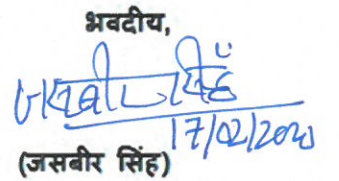 भवदीय,
जसबीर सिंह
17/02/2020
(जसबीर सिंह)